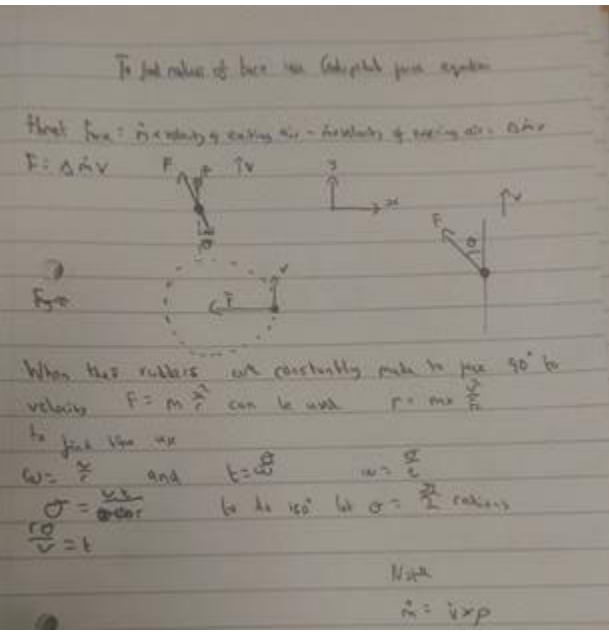 To find radius of turn use Centripetal force equation
thrust Force = ṁ × velocity of exiting air - ṁ × velocity of air = Δṁv
F = Δṁv
F F ↑v y
θ x
F θ v
v
F
When the rubbers are constantly made to face 90° to
velocity F = m v²/r can be used r = m × v²/F
to find time use
ω = v/r and t = θ/ω ω = θ/t
θ = vt/r to do 180° let θ = radians
rθ/v = t
Note
ṁ = v̇ × ρ